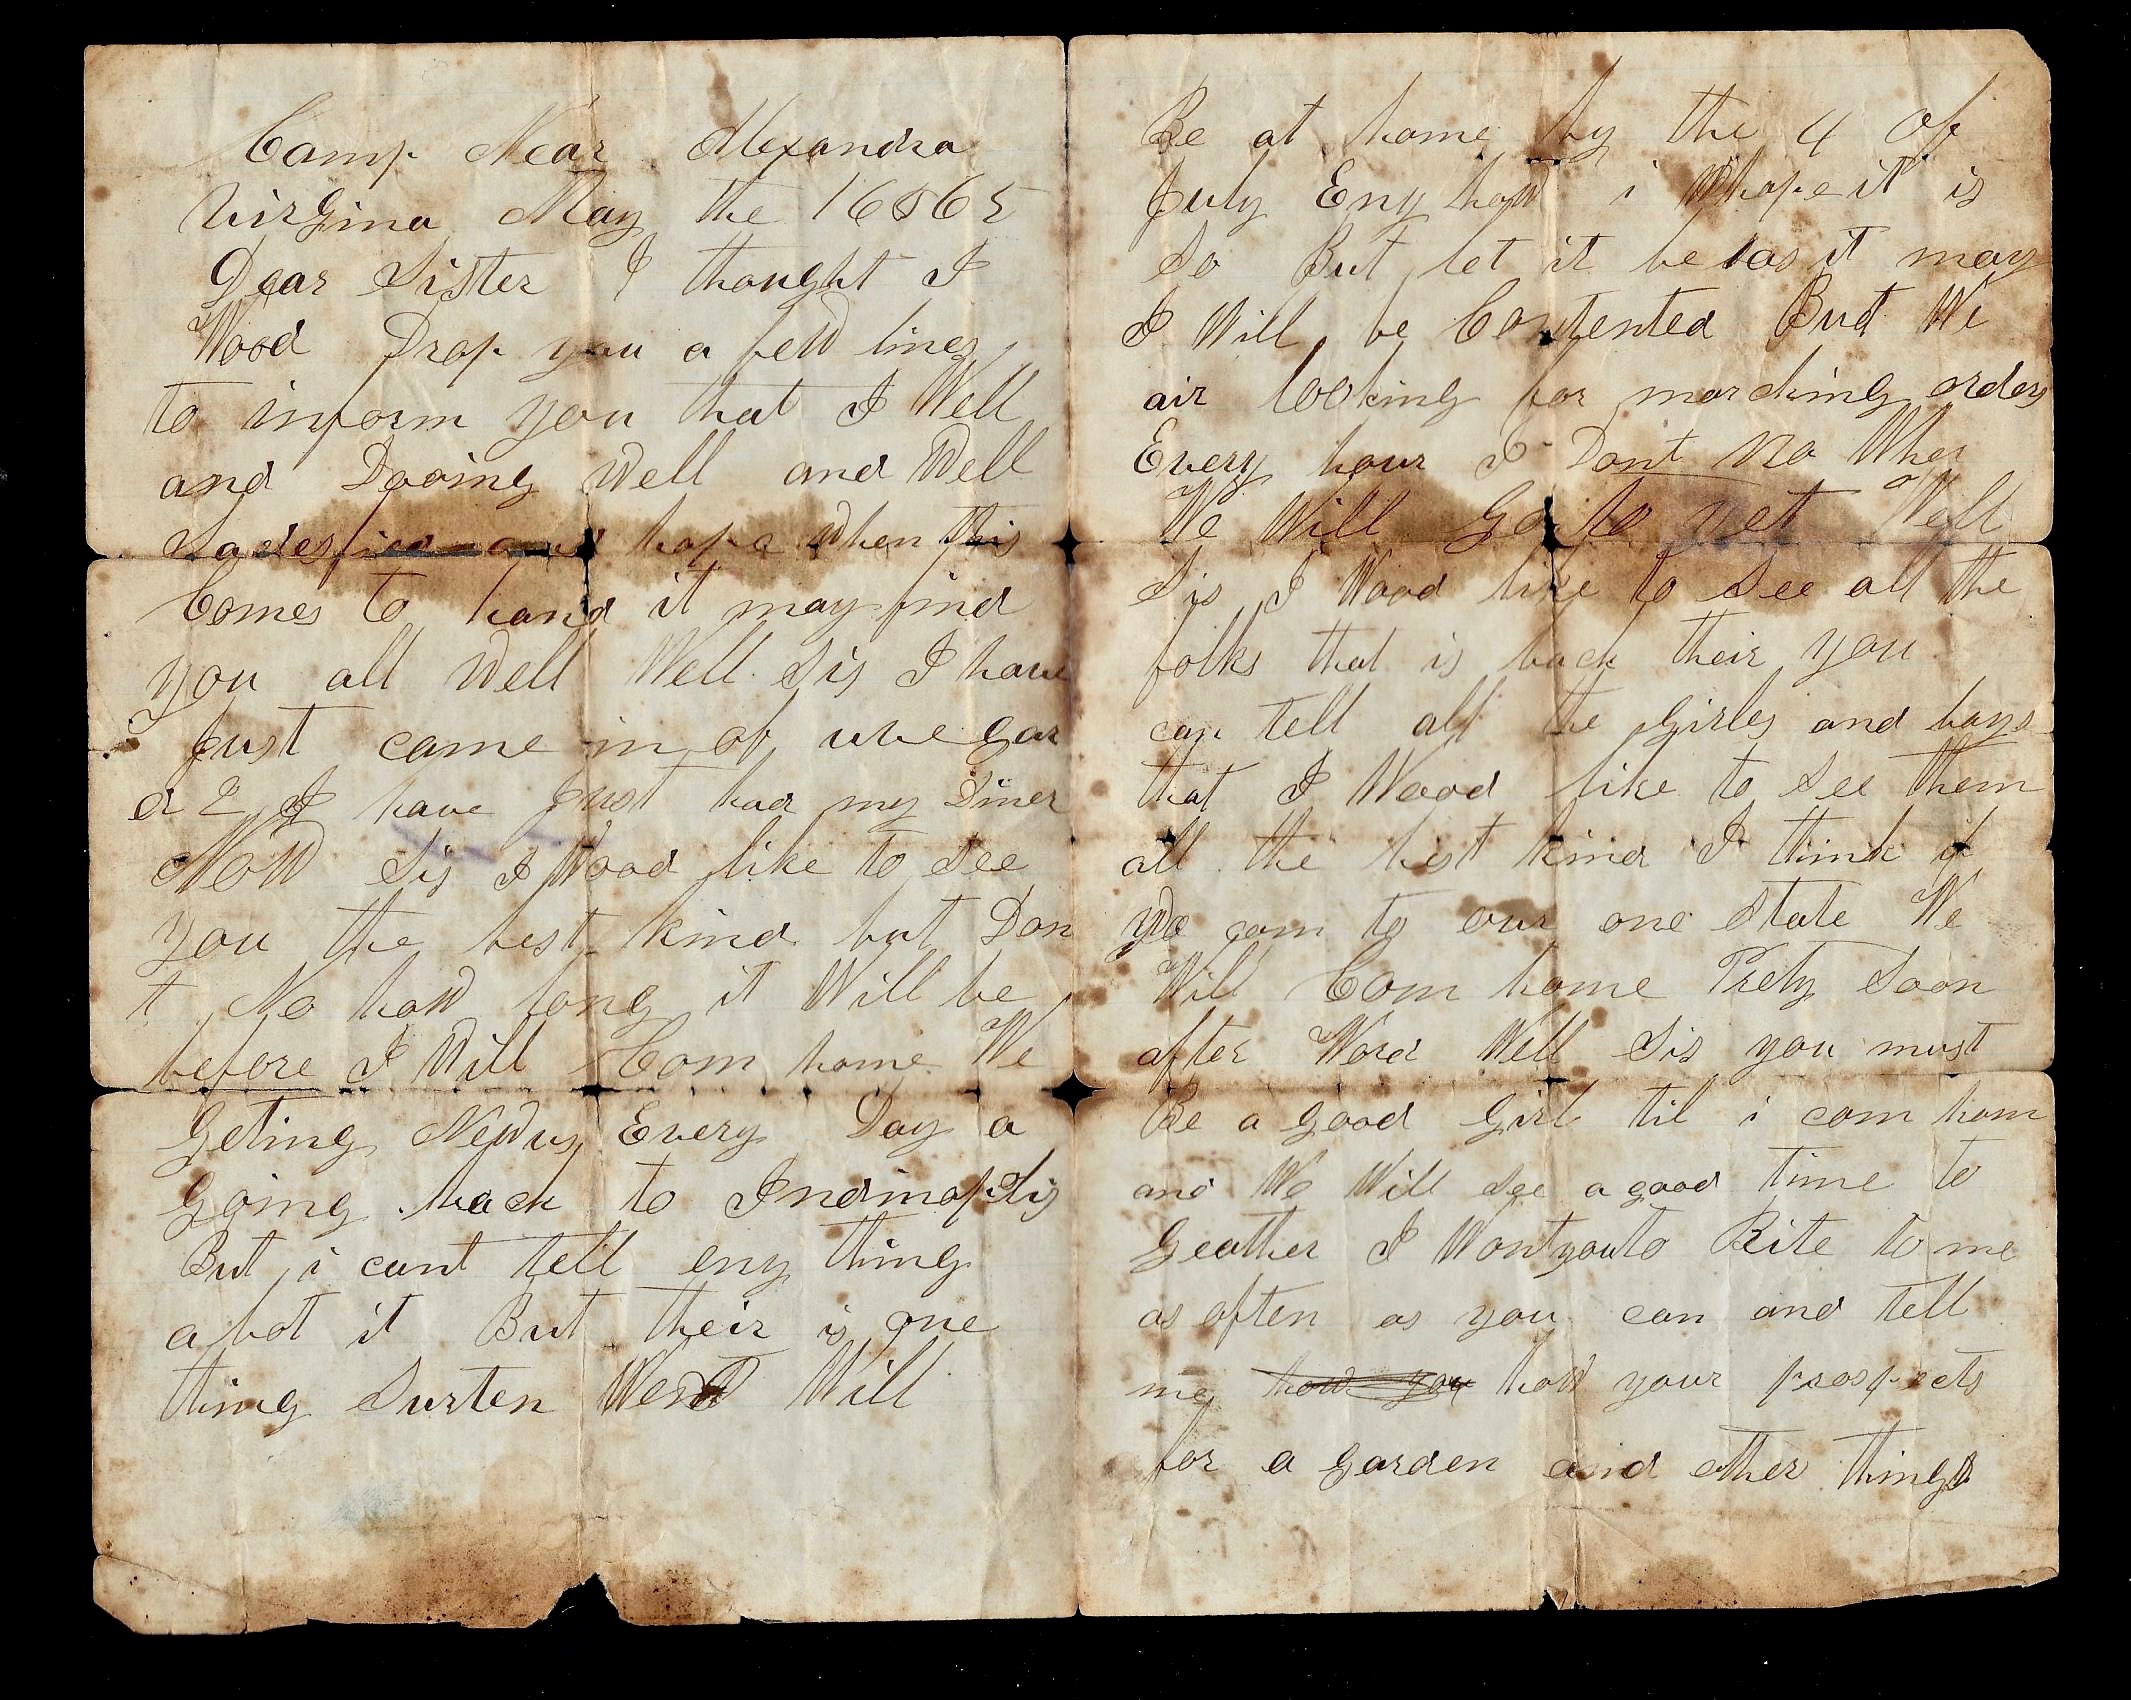 Camp Near Alexandra
Virgina May the 16 865
Dear Sister I thought I
Wood Drop you a feW lines
to inform you that I Well
and Dooing Well and Well
hope When this
Comes to hand it may find
you all Well Well Sis I have
Just came in of
I have Just had my Diner
NoW Sis I Wood like to See
you the best kind but Don
t No hoW long it Will be
before I Will Com home We
Geting NeWus Every Day a
Going back to
But i cant tell eny thing
abot it But their is one
thing Surten Will
Be at home by the 4 Of
July Eny hoW i Whope it is
So But let it be as it may
I Will be Contented But We
air looking for marching orders
Every hour I Dont No Wher
We Will Go to yet Well
Sis I Wood like to See all the
folks that is back their you
can tell all the Girles and boys
that I Wood like to See them
all the best kind I think if
We com to our one State We
Will Com home Prety Soon
after Word Well Sis you must
Be a good Girl til i com hom
and We Will See a good time to
Geather I Wont you to Rite to me
as often as you can and tell
me how you hoW your prospects
for a garden and other things